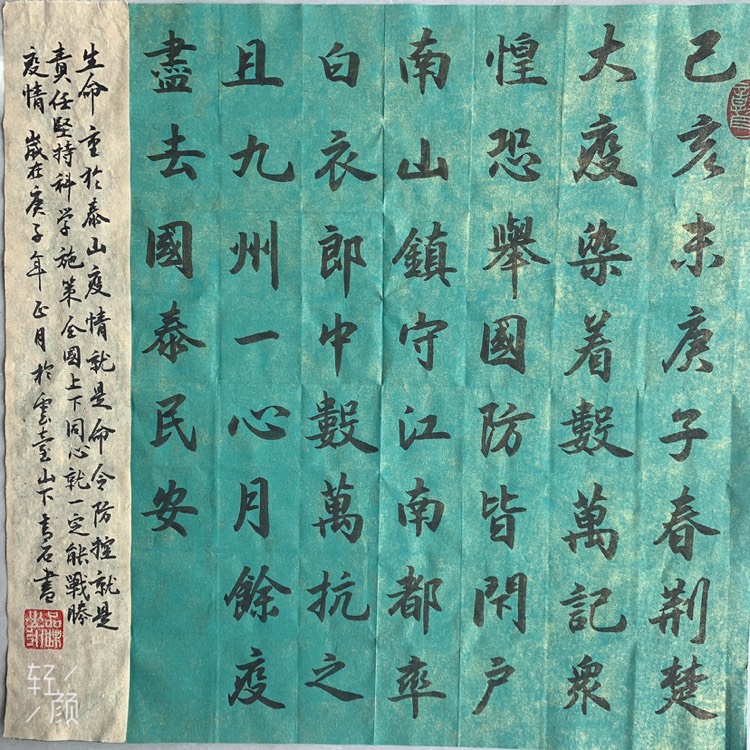 己亥末庚子春荆楚
大疫染着數萬記衆
惶恐舉國防皆閉户
南山鎮守江南都率
白衣郎中數萬抗之
且九州一心月餘疫
盡去國泰民安
生命重於泰山疫情就是命令防控就是
責任堅持科学施策全國上下同心就一定能戰勝
疫情 嵗在庚子年正月於雲臺山下青石書
轻颜